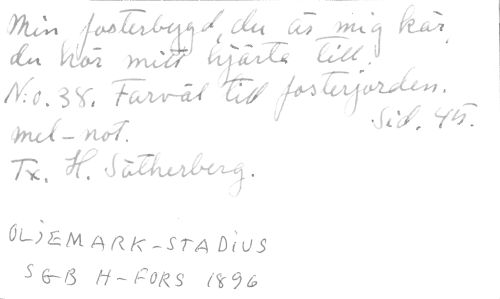 Min fosterbygd, du är mig kär,
du hör mitt hjärta till.
N:o. 38. Farväl till fosterjorden.
Sid. 45.
mel-not.
Tx. H. Sätherberg.
OLJEMARK-STADIUS
SGB H-FORS 1896